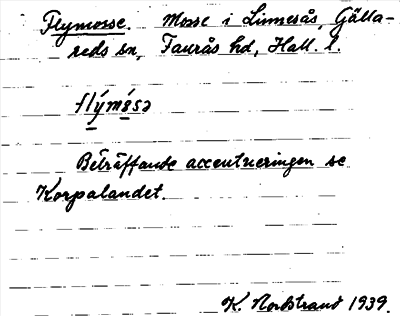 Flymosse. Mosse i Linnesås, Gälla-
reds sn, Faurås hd, Hall. l.
flýmòsə
Beträffande accentueringen se
Korpalandet.
K. Nordstrand 1939.